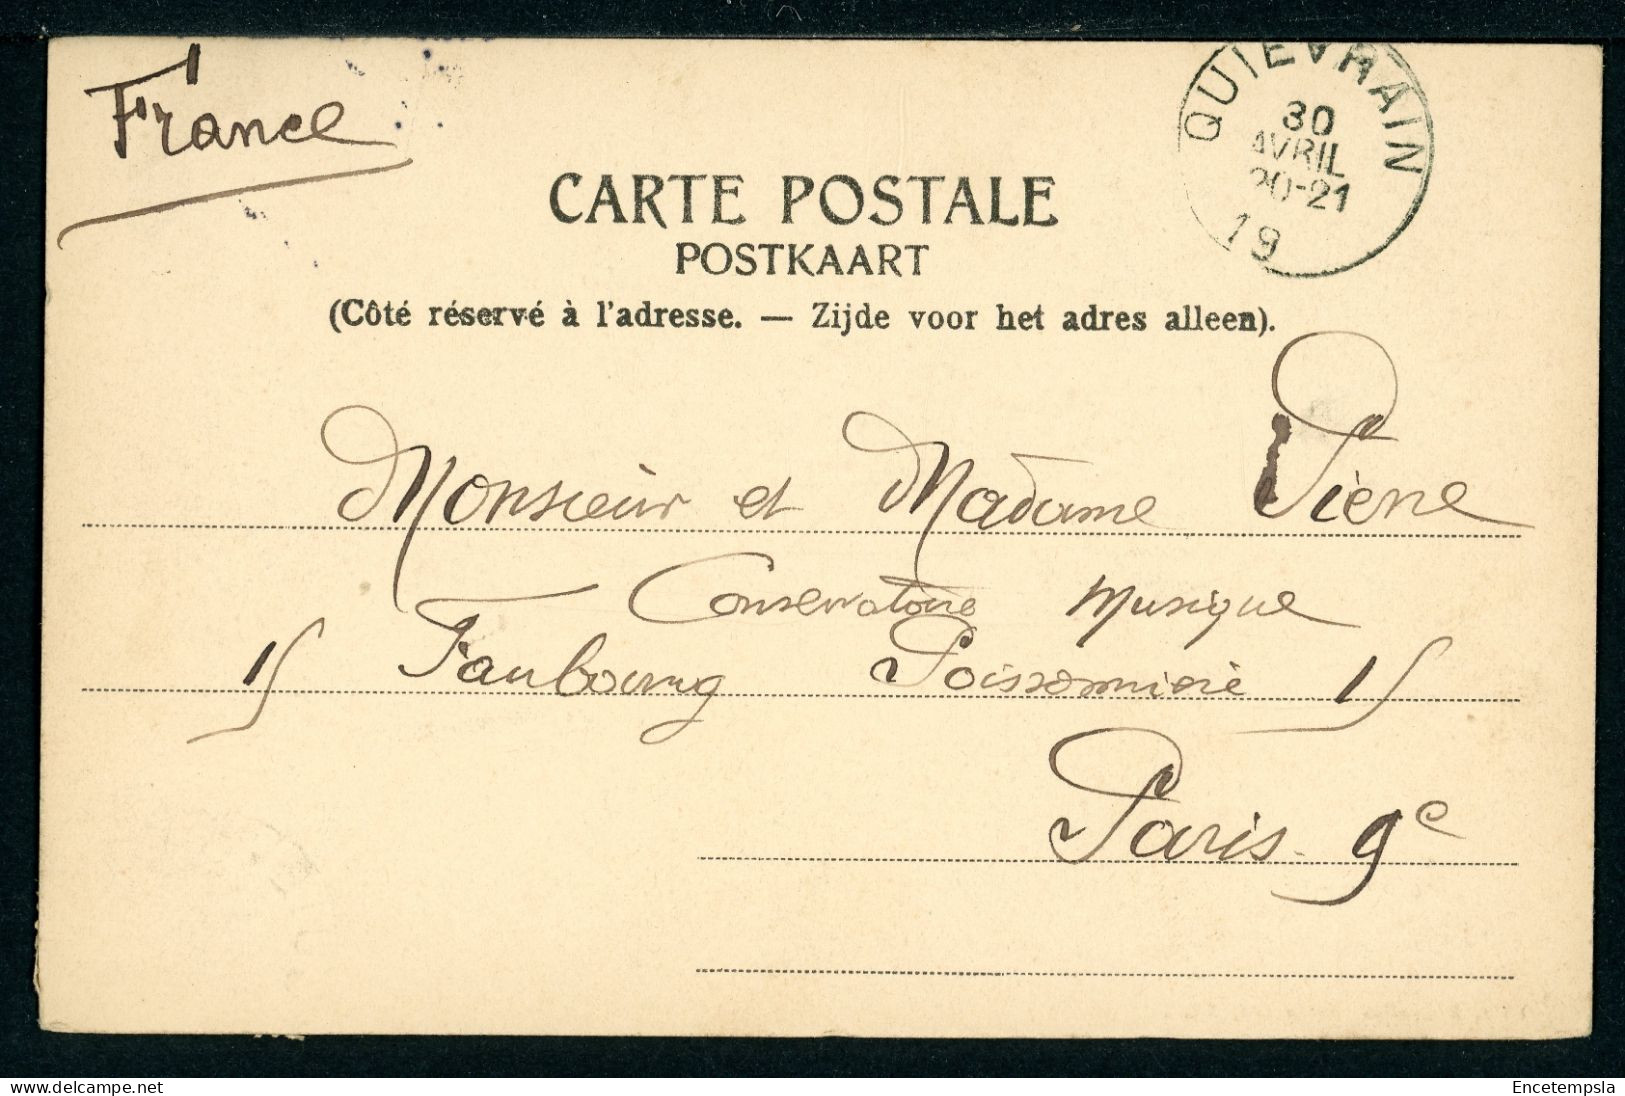 France
QUIEVRAIN
30
AVRIL
20-21
19
CARTE POSTALE
POSTKAART
(Côté réservé à l'adresse. — Zijde voor het adres alleen).
Monsieur et Madame Pierre
Conservatoire Musique
15 Faubourg Poissonnière 15
Paris 9e
www.delcampe.net
Encetempsla